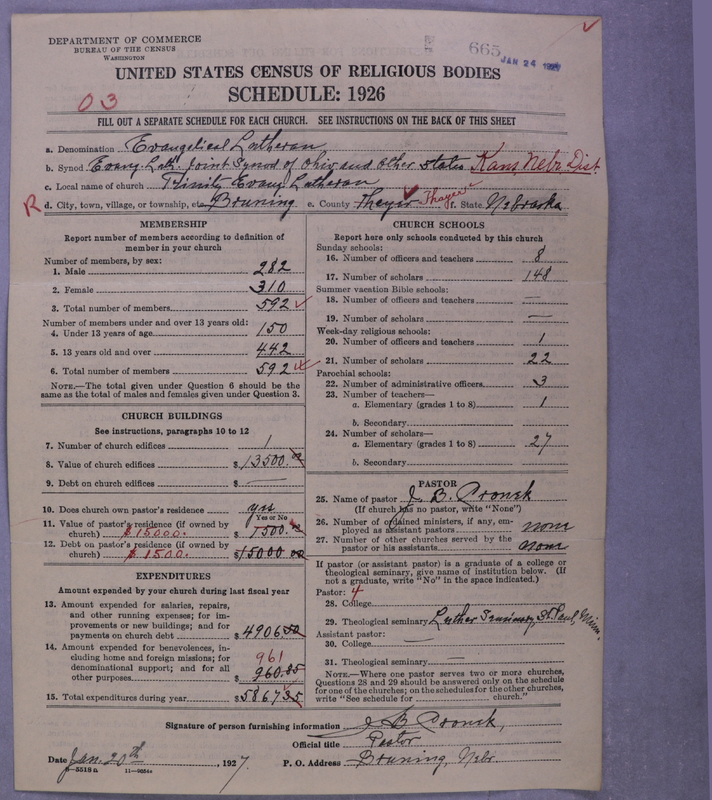 DEPARTMENT OF COMMERCE
BUREAU OF THE CENSUS
WASHINGTON
665
JAN 24 1927
UNITED STATES CENSUS OF RELIGIOUS BODIES
SCHEDULE: 1926
03
FILL OUT A SEPARATE SCHEDULE FOR EACH CHURCH. SEE INSTRUCTIONS ON THE BACK OF THIS SHEET
a. Denomination Evangelical Lutheran
b. Synod Evang. Luth. Joint Synod of Ohio and Other States Kans Nebr Dist.
c. Local name of church Trinity Evang Lutheran
R d. City, town, village, or township, etc. Bruning e. County Thayer Thayer f. State Nebraska
MEMBERSHIP
Report number of members according to definition of member in your church
Number of members, by sex:
1. Male 282
2. Female 310
3. Total number of members 592
Number of members under and over 13 years old:
4. Under 13 years of age 150
5. 13 years old and over 442
6. Total number of members 592
NOTE.—The total given under Question 6 should be the same as the total of males and females given under Question 3.
CHURCH BUILDINGS
See instructions, paragraphs 10 to 12
7. Number of church edifices 1
8. Value of church edifices $13500.00
9. Debt on church edifices $ —
10. Does church own pastor's residence yes
Yes or No
11. Value of pastor's residence (if owned by church) $15000. $1500.
12. Debt on pastor's residence (if owned by church) $1500. $15000 00
EXPENDITURES
Amount expended by your church during last fiscal year
13. Amount expended for salaries, repairs, and other running expenses; for improvements or new buildings; and for payments on church debt $4906.50
14. Amount expended for benevolences, including home and foreign missions; for denominational support; and for all other purposes 961 960.85
15. Total expenditures during year $5867.35
CHURCH SCHOOLS
Report here only schools conducted by this church
Sunday schools:
16. Number of officers and teachers 8
17. Number of scholars 148
Summer vacation Bible schools:
18. Number of officers and teachers —
19. Number of scholars —
Week-day religious schools:
20. Number of officers and teachers 1
21. Number of scholars 22
Parochial schools:
22. Number of administrative officers 3
23. Number of teachers—
a. Elementary (grades 1 to 8) 1
b. Secondary
24. Number of scholars—
a. Elementary (grades 1 to 8) 27
b. Secondary
PASTOR
25. Name of pastor J. B. Pronek
(If church has no pastor, write "None")
26. Number of ordained ministers, if any, employed as assistant pastors none
27. Number of other churches served by the pastor or his assistants none
If pastor (or assistant pastor) is a graduate of a college or theological seminary, give name of institution below. (If not a graduate, write "No" in the space indicated.)
Pastor: 4
28. College
29. Theological seminary Luther Seminary, St. Paul, Minn.
Assistant pastor:
30. College —
31. Theological seminary —
NOTE.—Where one pastor serves two or more churches, Questions 28 and 29 should be answered only on the schedule for one of the churches; on the schedules for the other churches, write "See schedule for church."
Signature of person furnishing information J B Pronek,
Official title Pastor
Date Jan. 20th, 1927. P. O. Address Bruning, Nebr.
11—9654a